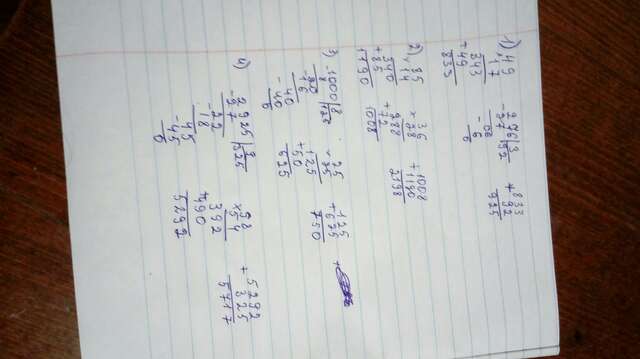 1) 49
× 17
343
+ 49
833
- 276|3
27|92
- 06
6
0
+ 833
92
925
2) × 85
14
340
+ 85
1190
× 36
28
288
+ 72
1008
+ 1008
1190
2198
3) - 1000|8
8|125
- 20
16
- 40
40
0
× 25
25
125
+ 50
625
+ 125
625
750
+
4) - 2925|9
27|325
- 22
18
- 45
45
0
× 98
54
392
+ 490
5292
+ 5292
325
5717